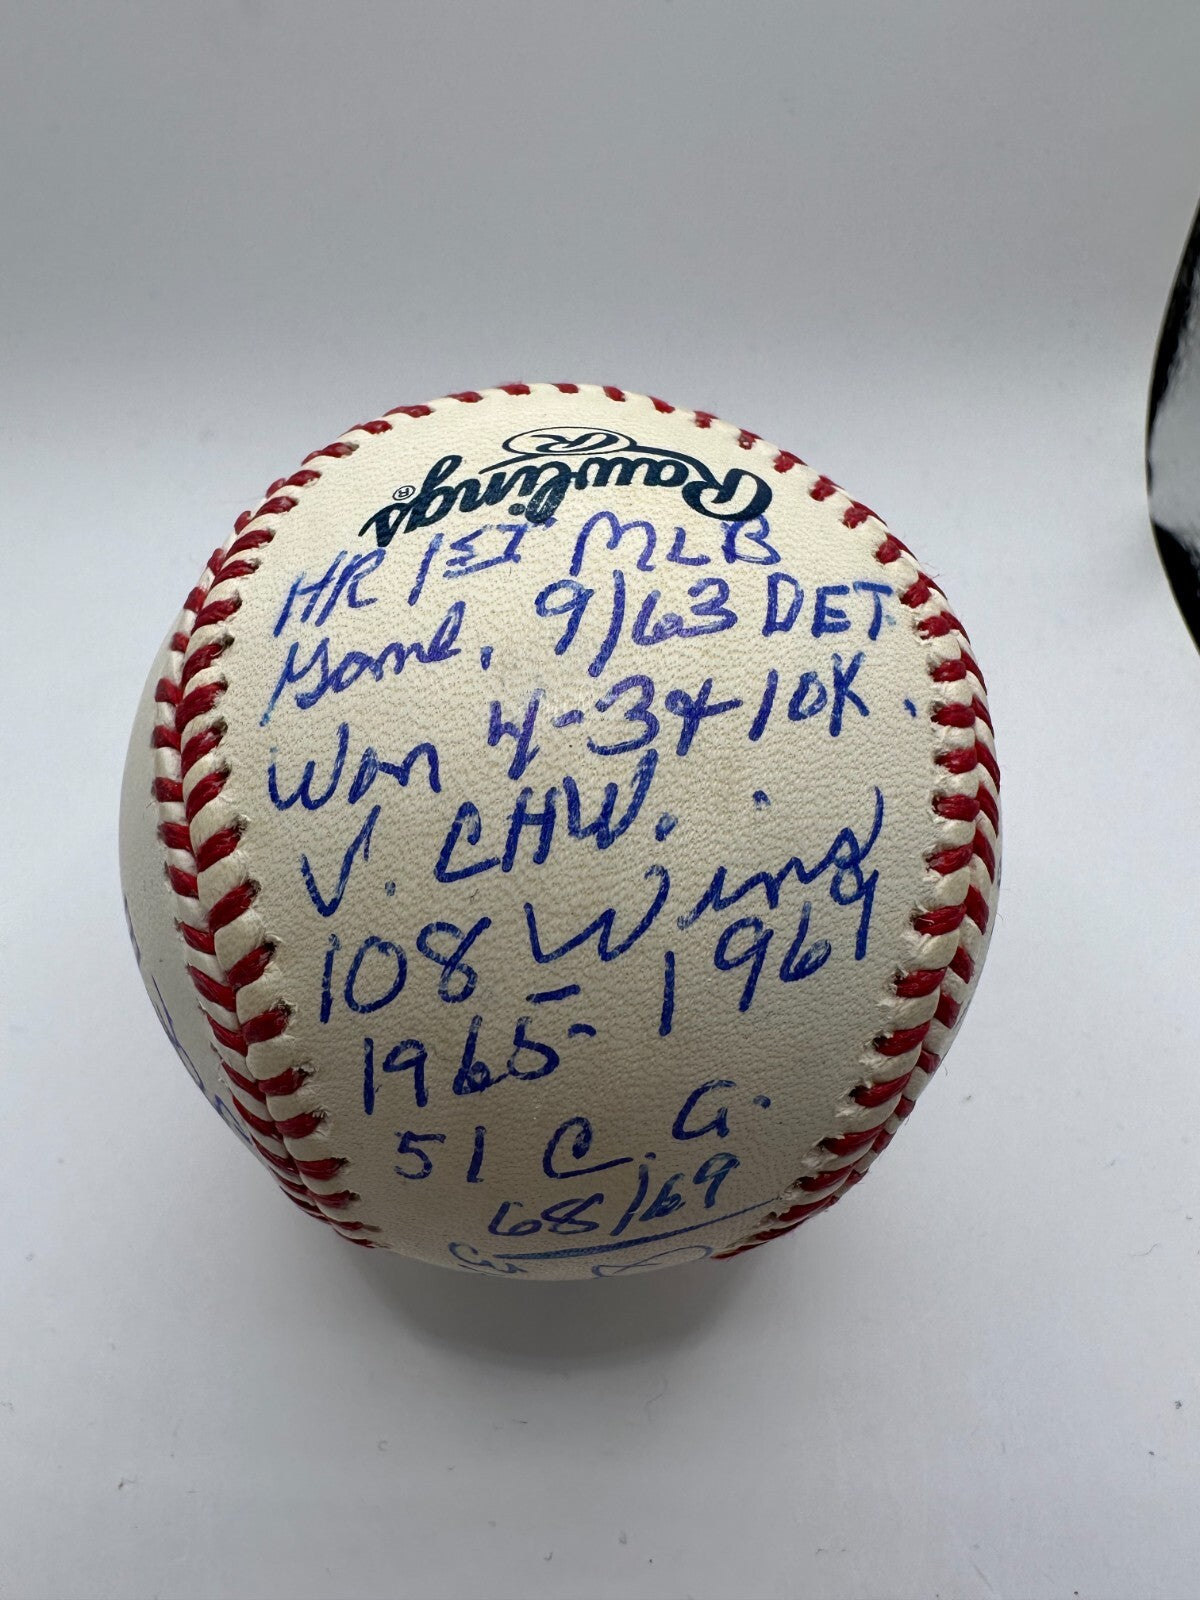 Rawlings ®
HR 1ST MLB
Game, 9/63 DET.
Won 4-3 & 10K.
V. CHW.
108 Wins
1965-1969
51 C.G.
68/69